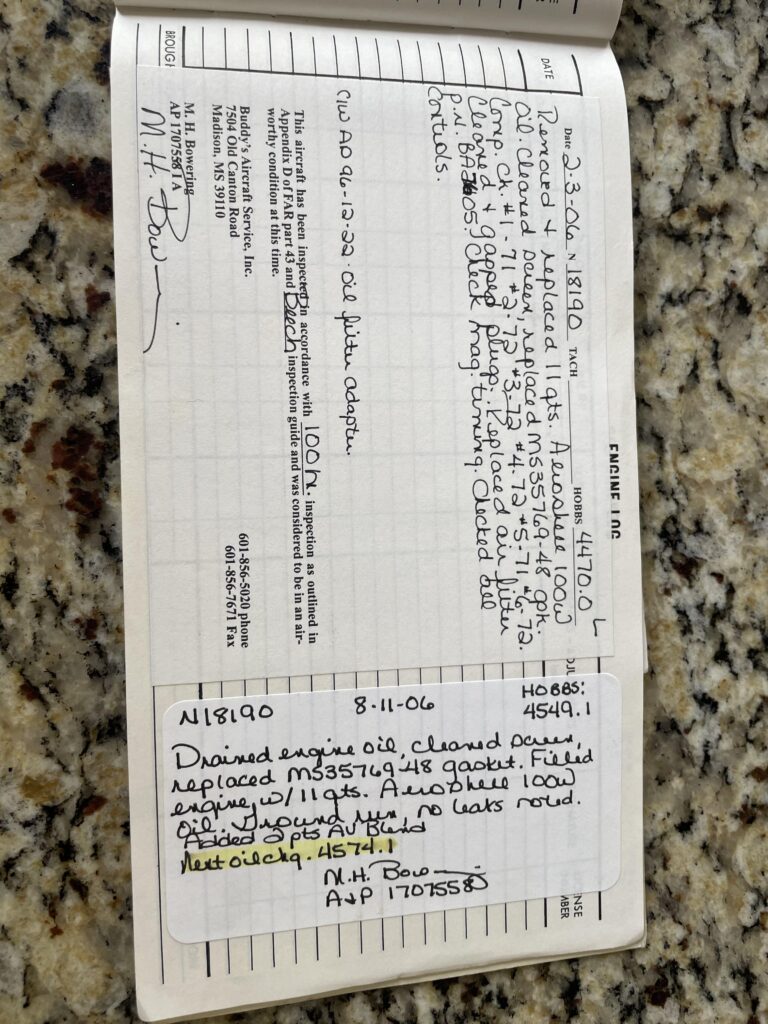 ENGINE LOG
DATE
BROUGH
Date 2-3-06 N 18190 TACH HOBBS 4470.0 L
Removed & replaced 11 qts. Aeroshell 100W
oil. Cleaned screen, replaced MS35769-48 gsk.
Comp. Ch. #1-71 #2-72 #3-72 #4-72 #5-71 #6-72.
Cleaned & gapped plugs. Replaced air filter
P.N. BA7605. Check mag. timing checked all
Controls.
C/W AD 96-12-22. Oil filter adapter.
This aircraft has been inspected in accordance with 100 hr. inspection as outlined in
Appendix D of FAR part 43 and Beech inspection guide and was considered to be in an air-
worthy condition at this time.
Buddy's Aircraft Service, Inc.
7504 Old Canton Road
Madison, MS 39110
601-856-5020 phone
601-856-7671 Fax
M. H. Bowering
AP 1707558 I A
M. H. Bow
N18190 8-11-06 HOBBS:
4549.1
Drained engine oil, cleaned screen,
replaced MS35769-48 gasket. Filled
engine w/ 11 qts. Aeroshell 100W
oil. Ground run, no leaks noted.
Added 2 pts AV Blend
Next oil chg. 4574.1
M.H. Bow
A&P 1707558
ENSE
MBER